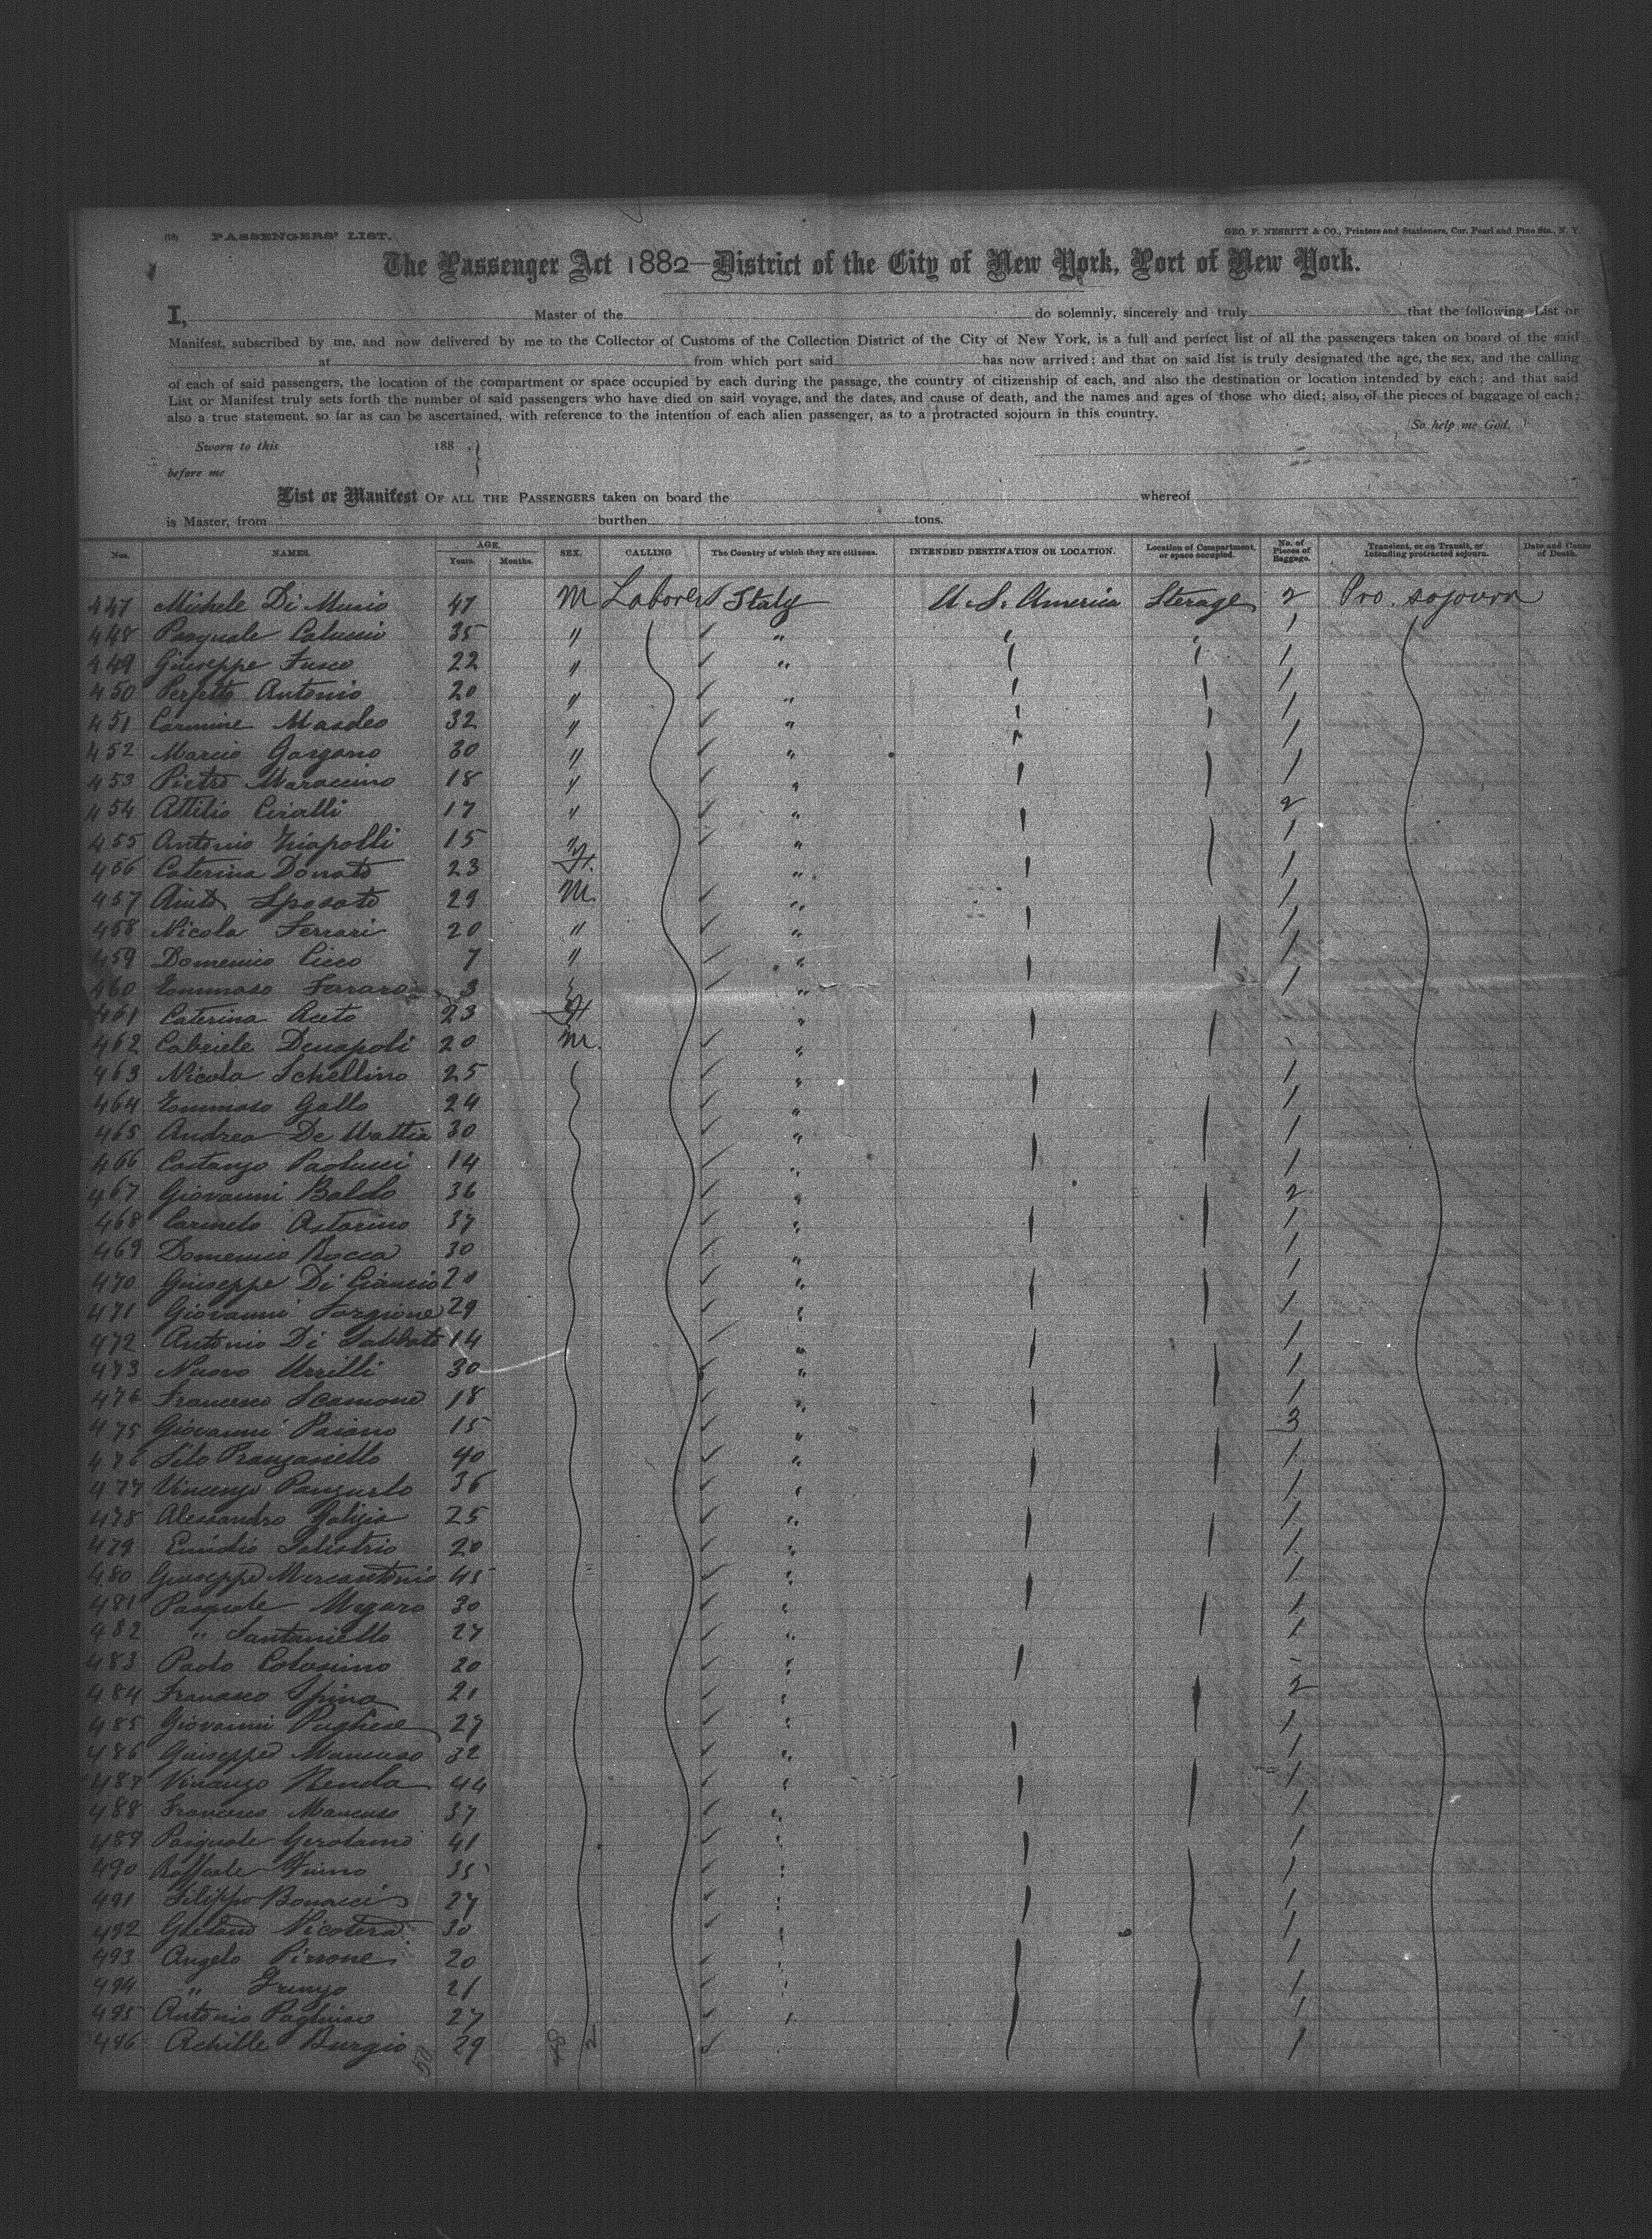 (18) PASSENGERS' LIST.
GEO. F. NESBITT & CO., Printers and Stationers, Cor. Pearl and Pine Sts., N. Y.
The Passenger Act 1882—District of the City of New York, Port of New York.
I, Master of the do solemnly, sincerely and truly that the following List or
Manifest, subscribed by me, and now delivered by me to the Collector of Customs of the Collection District of the City of New York, is a full and perfect list of all the passengers taken on board of the said
at from which port said has now arrived; and that on said list is truly designated the age, the sex, and the calling
of each of said passengers, the location of the compartment or space occupied by each during the passage, the country of citizenship of each, and also the destination or location intended by each; and that said
List or Manifest truly sets forth the number of said passengers who have died on said voyage, and the dates, and cause of death, and the names and ages of those who died; also, of the pieces of baggage of each;
also a true statement, so far as can be ascertained, with reference to the intention of each alien passenger, as to a protracted sojourn in this country.
So help me God.
Sworn to this 188 .
before me
List or Manifest OF ALL THE PASSENGERS taken on board the whereof
is Master, from burthen tons.
Nos. NAMES. AGE. Years. Months. SEX. CALLING The Country of which they are citizens. INTENDED DESTINATION OR LOCATION. Location of Compartment, or space occupied. No. of Pieces of Baggage. Transient, or on Transit, or Intending protracted sojourn. Date and Cause of Death.
447 Michele Di Musio 47 M Laborer Italy U. S. America Sterage 2 Pro. sojourn
448 Pasquale Colucci 35 " " 1
449 Giuseppe Fusco 22 " " 1
450 Perfetto Antonio 20 " " 1
451 Carmine Masdeo 32 " " 1
452 Marcio Gargano 30 " " 1
453 Pietro 18 " " 1
454 Attilio Ciralli 17 " " 2
455 Antonio 15 " " 1
456 Caterina Donato 23 F. " 1
457 Sposato 29 M. " 1
458 Nicola Ferrari 20 " " 1
459 Domenico Cicco 7 " " 1
460 Tommaso Ferraro 3 " 1
461 Caterina Aceto 23 F " -
462 Gabriele Denapoli 20 M. " -
463 Nicola Schellino 25 " 1
464 Tommaso Gallo 24 " 1
465 Andrea De Mattia 30 " 1
466 Costanzo Paolucci 14 " 1
467 Giovanni Baldo 36 " 2
468 Carmelo Astorino 37 " 1
469 Domenico Rocca 30 " 1
470 Giuseppe Di Ciancio 20 " 1
471 Giovanni Forgione 29 " 1
472 Antonio Di Sabbato 14 " 1
473 Nuovo Urrilli 30 " 1
474 Francesco Scamone 18 " 1
475 Giovanni Paiano 15 " 3
476 Sito Pranzaniello 40 " 1
477 Vincenzo 36 " 1
478 Alessandro Galizia 25 " 1
479 Emidio Salistrio 20 " 1
480 Giuseppe Mercantonio 45 " 1
481 Pasquale Megaro 30 " 1
482 " Santaniello 27 " 1
483 Paolo Colosimo 20 " -
484 Francesco Spina 21 " 2
485 Giovanni Pugliese 27 " 1
486 Giuseppe Mancuso 32 " 1
487 Vincenzo Renda 44 " 1
488 Francesco Mancuso 37 " 1
489 Pasquale Gerolamo 41 " 1
490 Raffaele 35 " 1
491 Filippo Bonacci 27 " 1
492 Gaetano Nicotera 30 " 1
493 Angelo Pirrone 20 " 1
494 " 21 " 1
495 Antonio Pagliuso 27 " 1
496 Achille Burgio 29 1
50